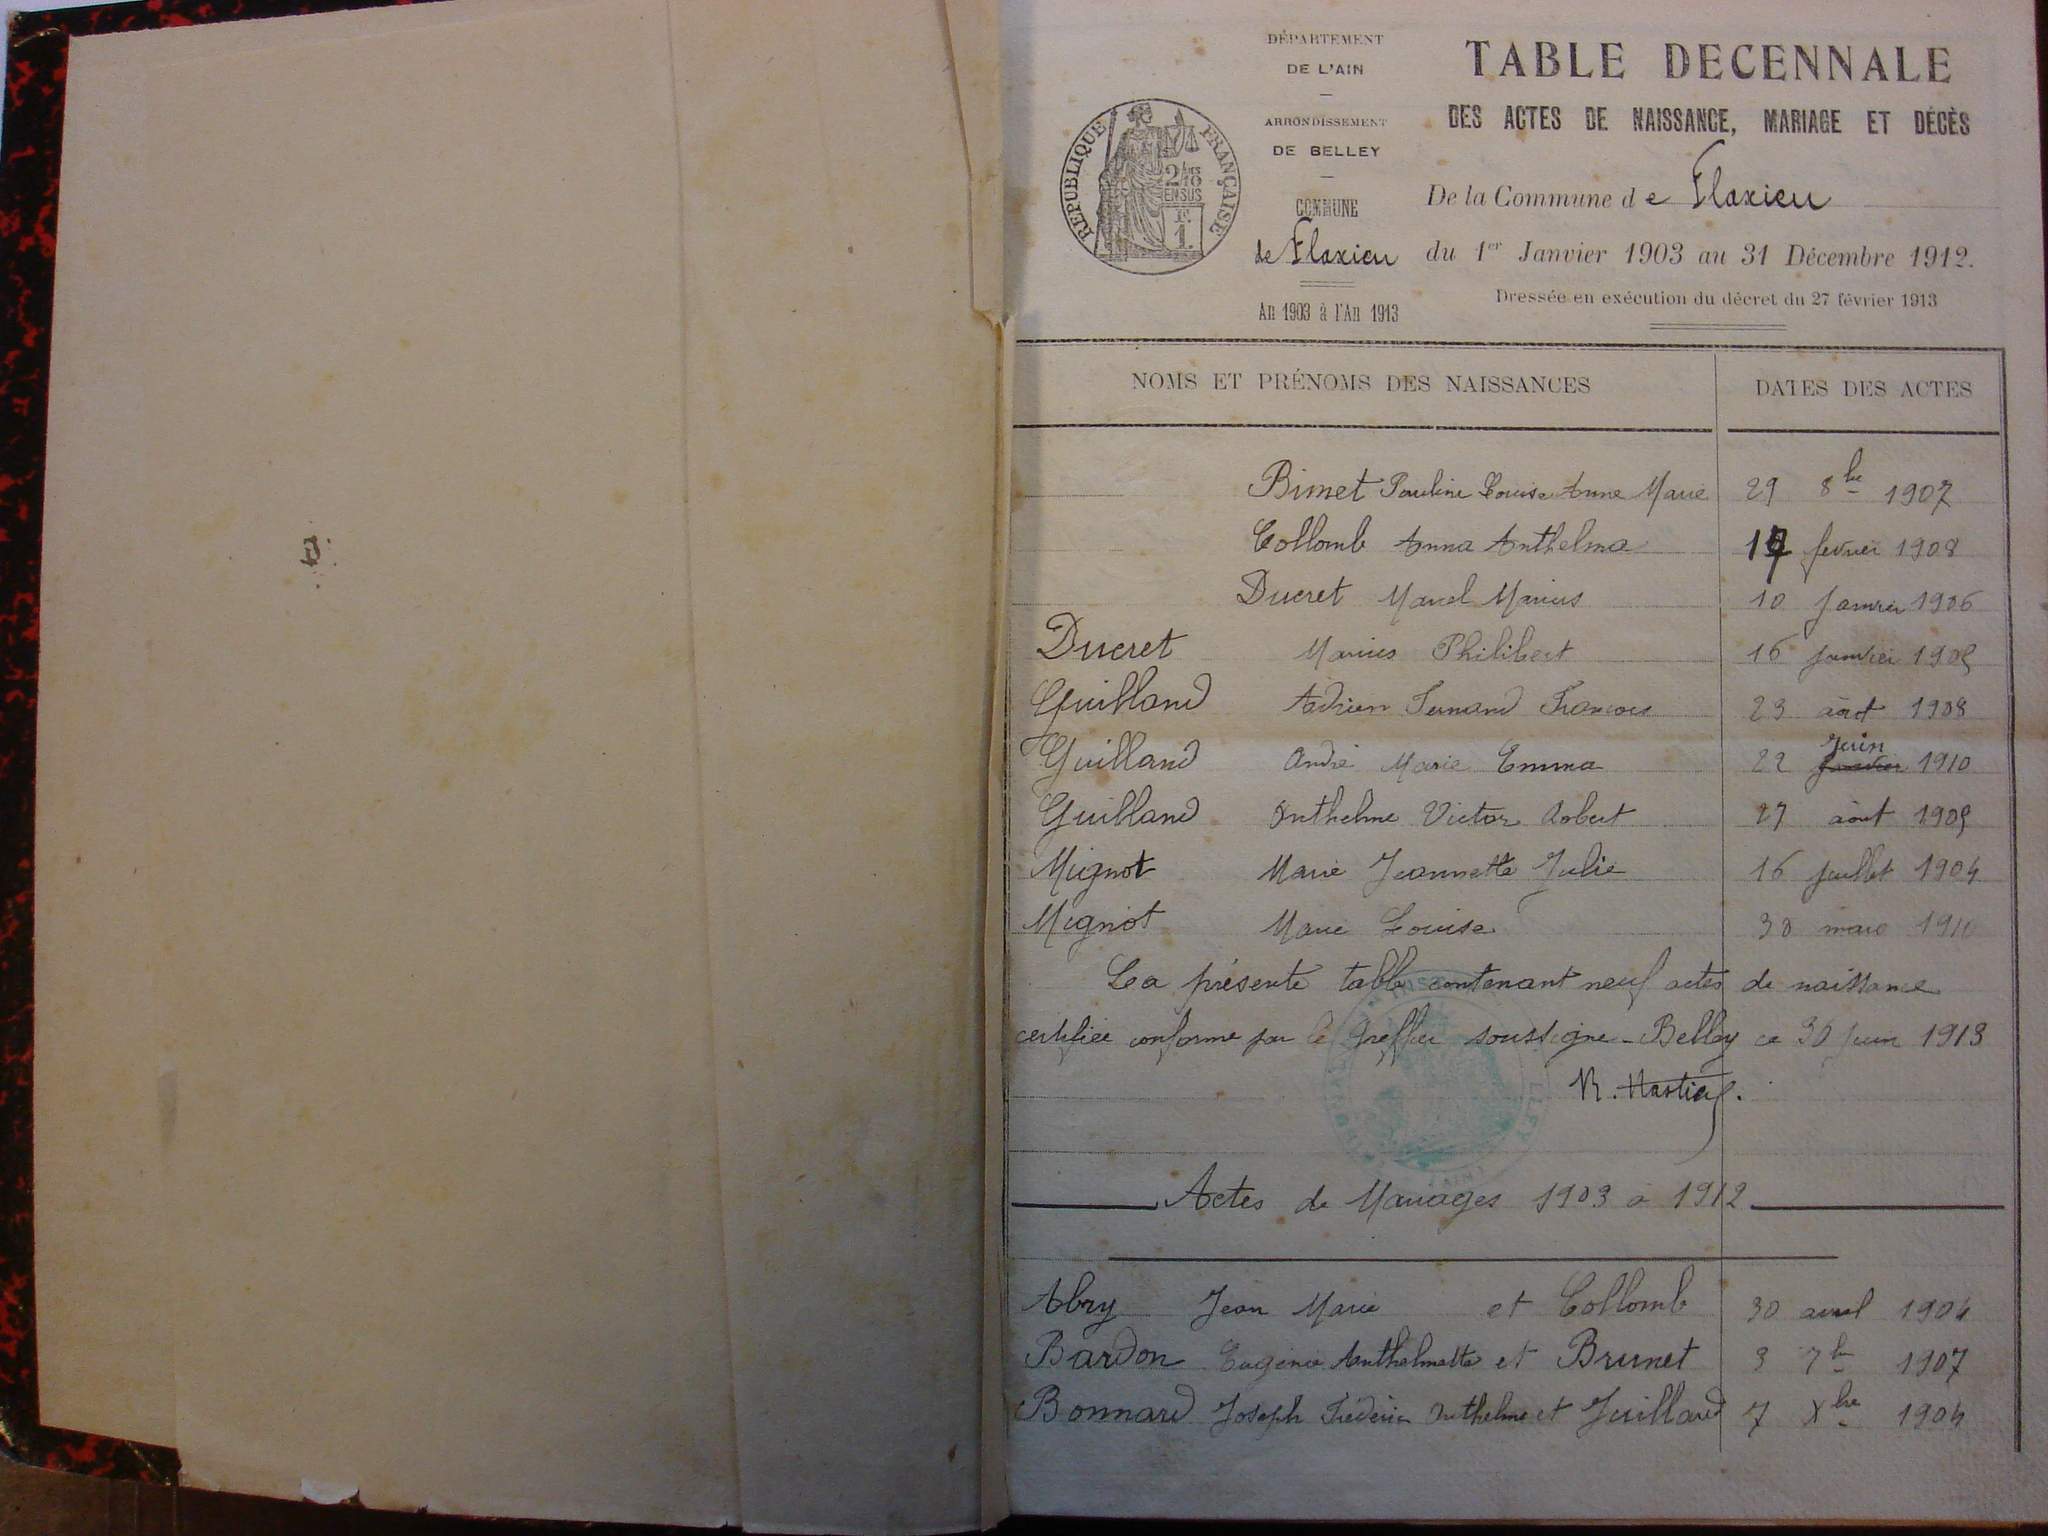 DÉPARTEMENT
DE L'AIN
ARRONDISSEMENT
DE BELLEY
COMMUNE
de Flaxieu
An 1903 à l'An 1913
RÉPUBLIQUE FRANÇAISE
EN SUS
1
TABLE DECENNALE
DES ACTES DE NAISSANCE, MARIAGE ET DÉCÈS
De la Commune de Flaxieu
du 1er Janvier 1903 au 31 Décembre 1912.
Dressée en exécution du décret du 27 février 1913
NOMS ET PRÉNOMS DES NAISSANCES DATES DES ACTES
Bimet Pauline Louise Anne Marie 29 8bre 1907
Collomb Anna Anthelma 17 fevrier 1908
Ducret Marcel Marius 10 Janvier 1906
Ducret Marius Philibert 16 janvier 1905
Guilland Adrien Fernand Francois 23 août 1908
Guilland André Marie Emma 22 Juin 1910
Guilland Anthelme Victor Robert 27 août 1905
Mignot Marie Jeannette Julie 16 juillet 1904
Mignot Marie Louise 30 mars 1910
La présente table contenant neuf actes de naissance
certifiée conforme par le Greffier soussigné - Belley ce 30 juin 1913
Actes de Mariages 1903 à 1912
Abry Jean Marie et Collomb 30 avril 1904
Bardon Eugénie Anthelmette et Brunet 3 7bre 1907
Bonnard Joseph Frédéric Anthelme et Juilland 7 Xbre 1904